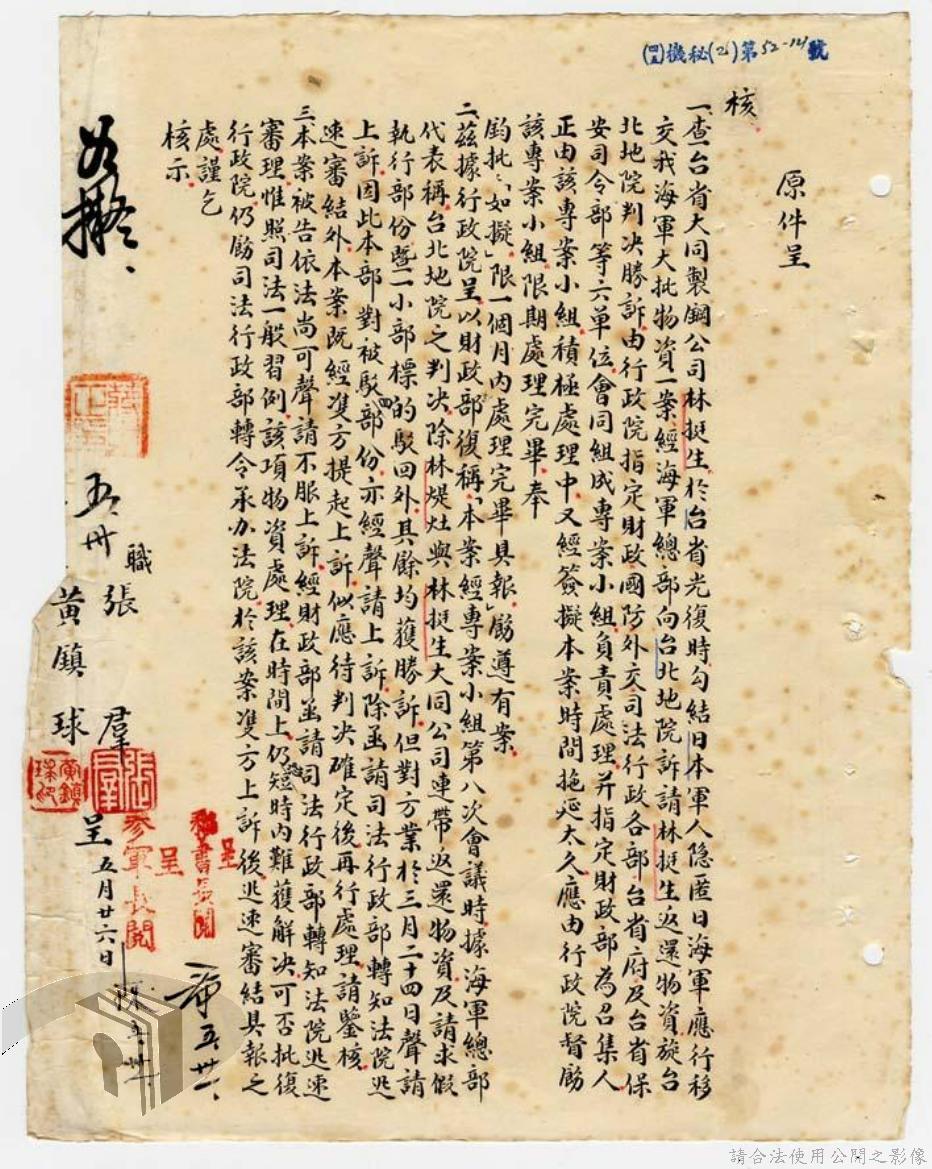 (四五)機秘(乙)第52-121號
原件呈
核
一、查台省大同製鋼公司林挺生於台省光復時勾結日本軍人隐匿日海軍應行移
交我海軍大批物資一案經海軍總部向台北地院訴請林挺生返還物資旋台
北地院判决勝訴由行政院指定財政國防外交司法行政各部台省府及台省保
安司令部等六單位會同組成專案小組負責處理并指定財政部為召集人
正由該專案小組積極處理中又經簽擬本案時間拖延太久應由行政院督飭
該專案小組限期處理完畢奉
鈞批:「如擬」限一個月內處理完畢具報」飭遵有案
二、茲據行政院呈以財政部復稱「本案經專案小組第八次會議時據海軍總部
代表稱台北地院之判决除林煶灶與林挺生大同公司連帶返還物資及請求假
執行部份暨一小部標的駁回外其餘均獲勝訴但對方業於三月二十四日聲請
上訴因此本部對被駁部份亦經聲請上訴除函請司法行政部轉知法院迅
速審結外本案既經雙方提起上訴似應待判决確定後再行處理請鑒核
三、本案被告依法尚可聲請不服上訴經財政部函請司法行政部轉知法院迅速
審理惟照司法一般習例該項物資處理在時間上仍短時內難獲解决可否批復
行政院仍飭司法行政部轉令承办法院於該案雙方上訴後迅速審結具報之
處謹乞
核示
職張羣
黃鎮球呈
五月廿六日
張羣
黃鎮球印
秘書長閱
呈
參軍長閱
呈
五.卅一
如擬
五.卅